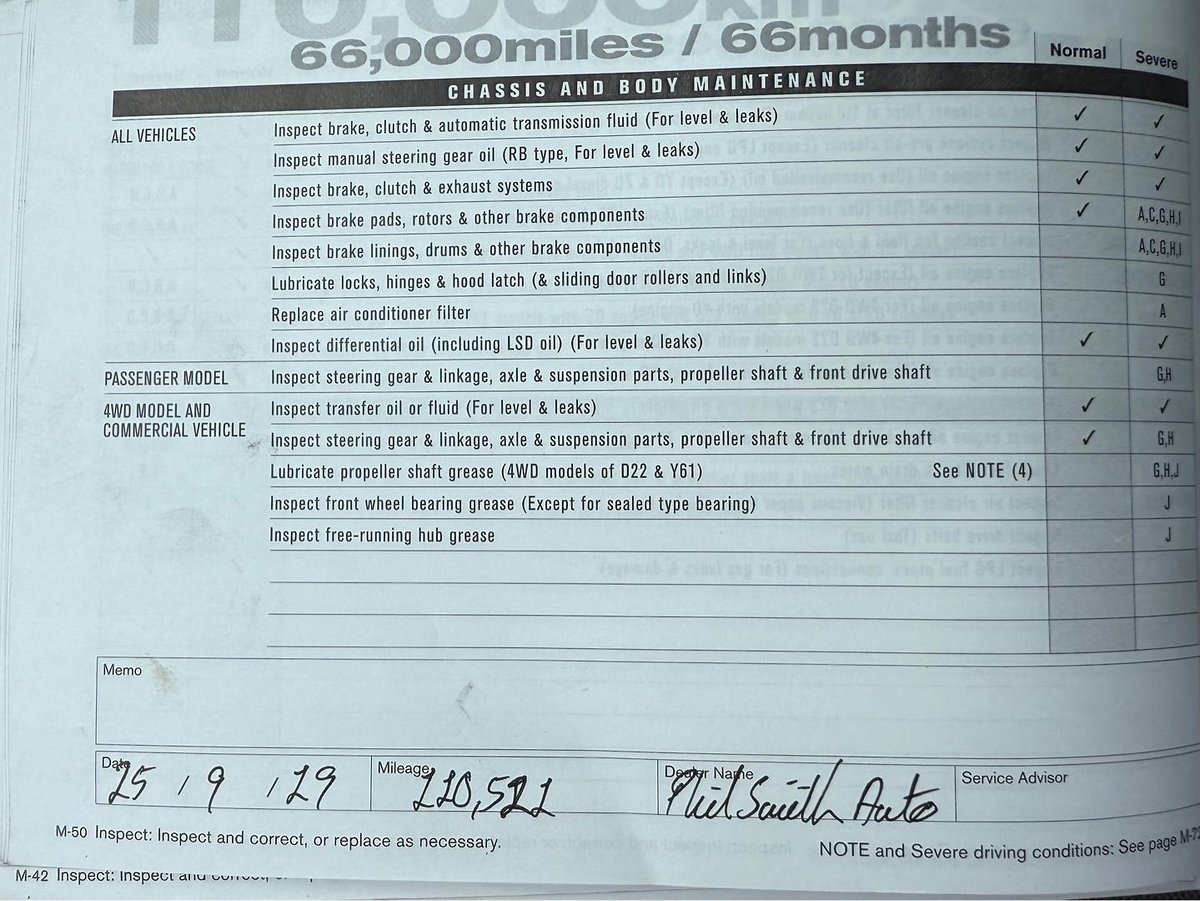 110,000km
66,000miles / 66months
Normal Severe
CHASSIS AND BODY MAINTENANCE
ALL VEHICLES Inspect brake, clutch & automatic transmission fluid (For level & leaks) ✓ ✓
Inspect manual steering gear oil (RB type, For level & leaks) ✓ ✓
Inspect brake, clutch & exhaust systems ✓ ✓
Inspect brake pads, rotors & other brake components ✓ A,C,G,H,I
Inspect brake linings, drums & other brake components A,C,G,H,I
Lubricate locks, hinges & hood latch (& sliding door rollers and links) G
Replace air conditioner filter A
Inspect differential oil (including LSD oil) (For level & leaks) ✓ ✓
PASSENGER MODEL Inspect steering gear & linkage, axle & suspension parts, propeller shaft & front drive shaft G,H
4WD MODEL AND COMMERCIAL VEHICLE Inspect transfer oil or fluid (For level & leaks) ✓ ✓
Inspect steering gear & linkage, axle & suspension parts, propeller shaft & front drive shaft ✓ G,H
Lubricate propeller shaft grease (4WD models of D22 & Y61) See NOTE (4) G,H,J
Inspect front wheel bearing grease (Except for sealed type bearing) J
Inspect free-running hub grease J
Memo
Date / 9 /
Mileage
Dealer Name Phil Smith Auto
Service Advisor
M-50 Inspect: Inspect and correct, or replace as necessary.
NOTE and Severe driving conditions: See page
M-42 Inspect: Inspect and